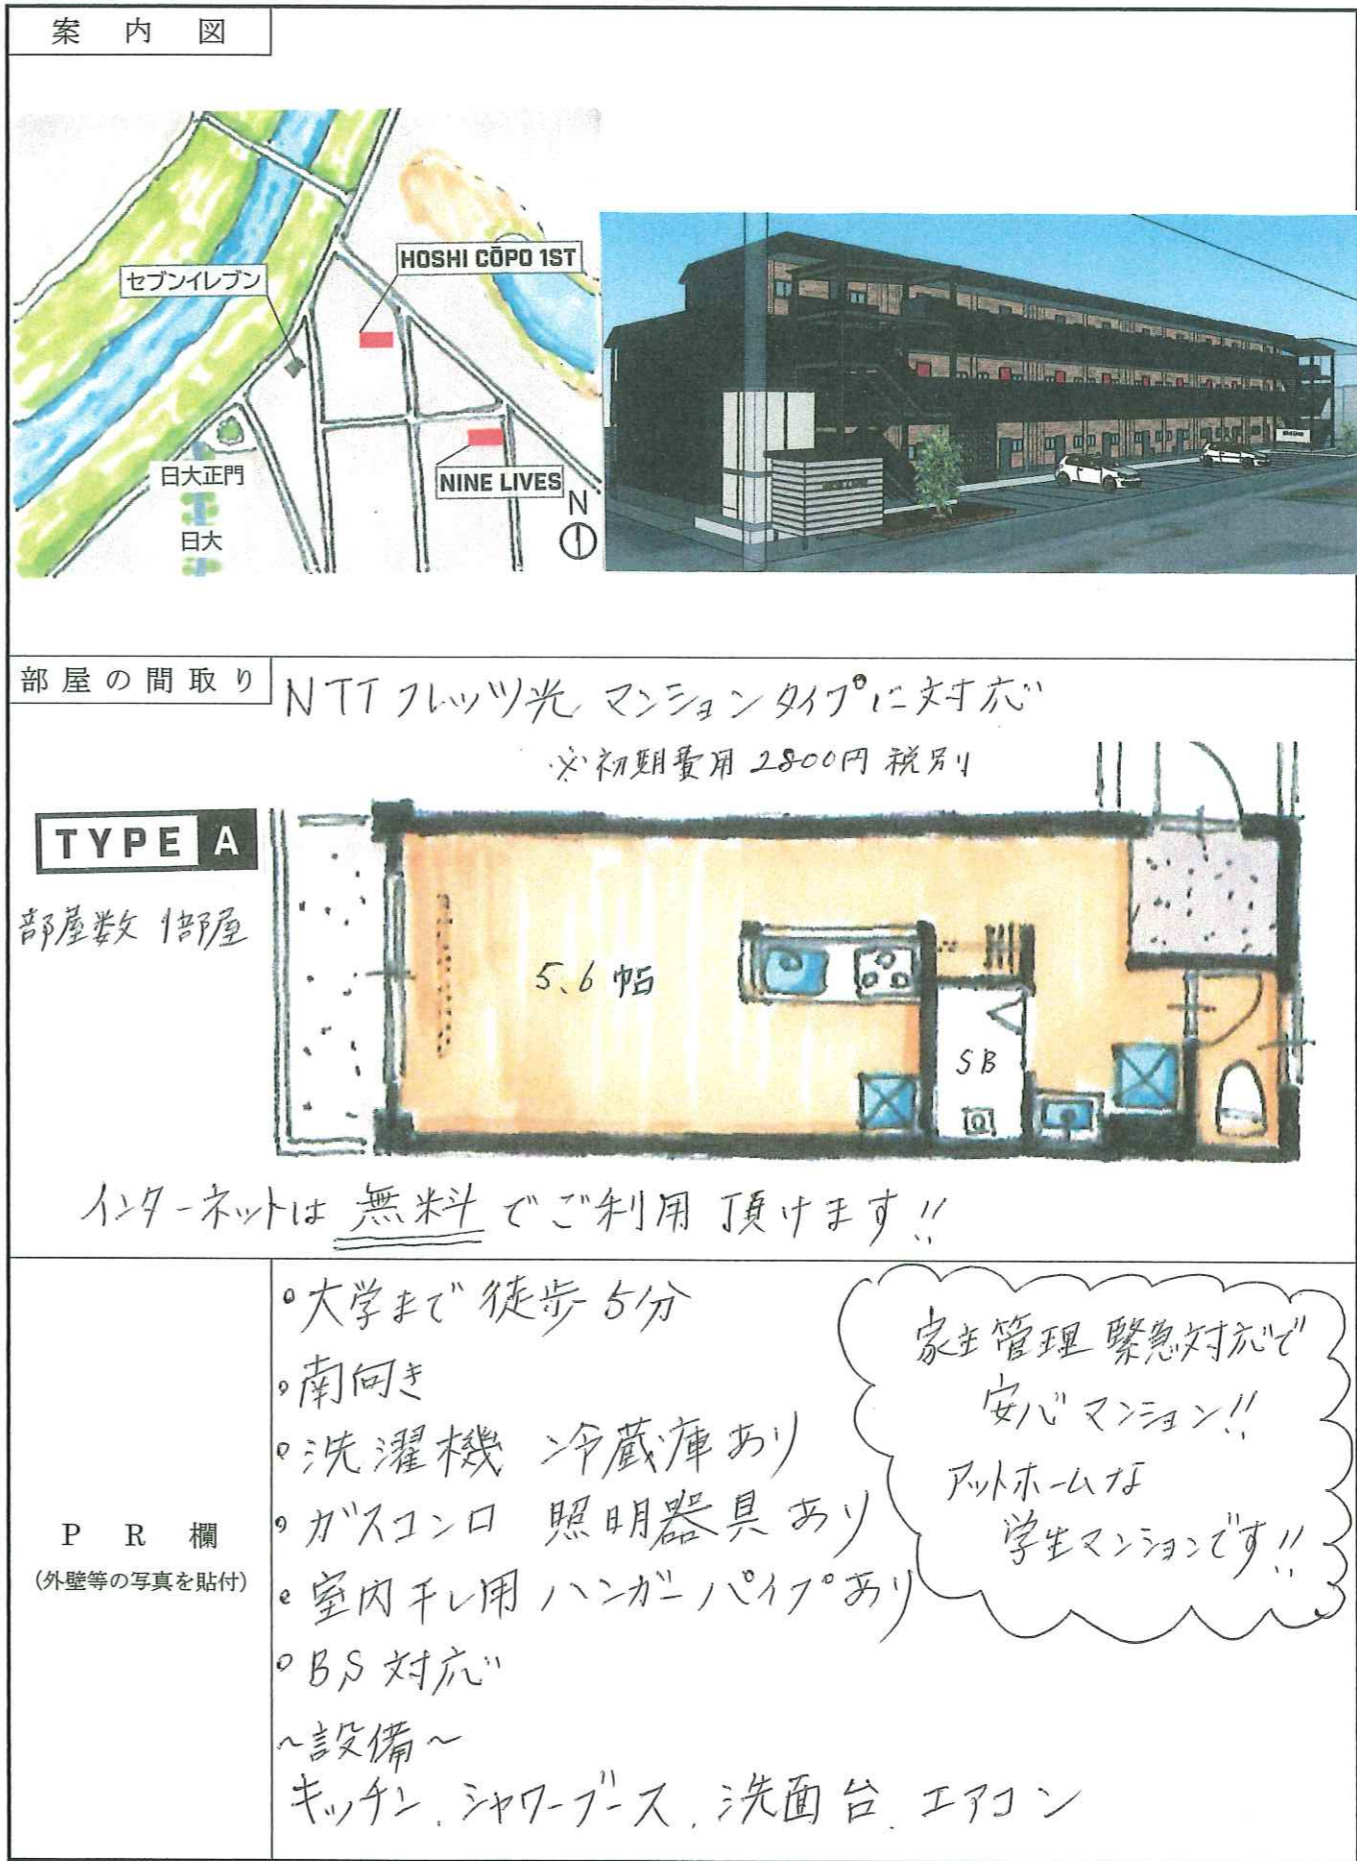 案内図
HOSHI CŌPO 1ST
セブンイレブン
NINE LIVES
日大正門
日大
N
部屋の間取り
NTTフレッツ光 マンションタイプに対応
※初期費用 2800円 税別
TYPE A
部屋数 1部屋
5.6帖
SB
インターネットは 無料 でご利用 頂けます!!
PR欄
(外壁等の写真を貼付)
・大学まで 徒歩 5分
・南向き
・洗濯機 冷蔵庫あり
・ガスコンロ 照明器具 あり
・室内干し用 ハンガーパイプあり
・BS 対応
~設備~
キッチン、シャワーブース、洗面台、エアコン
家主管理 緊急対応で
安心マンション!!
アットホームな
学生マンションです!!